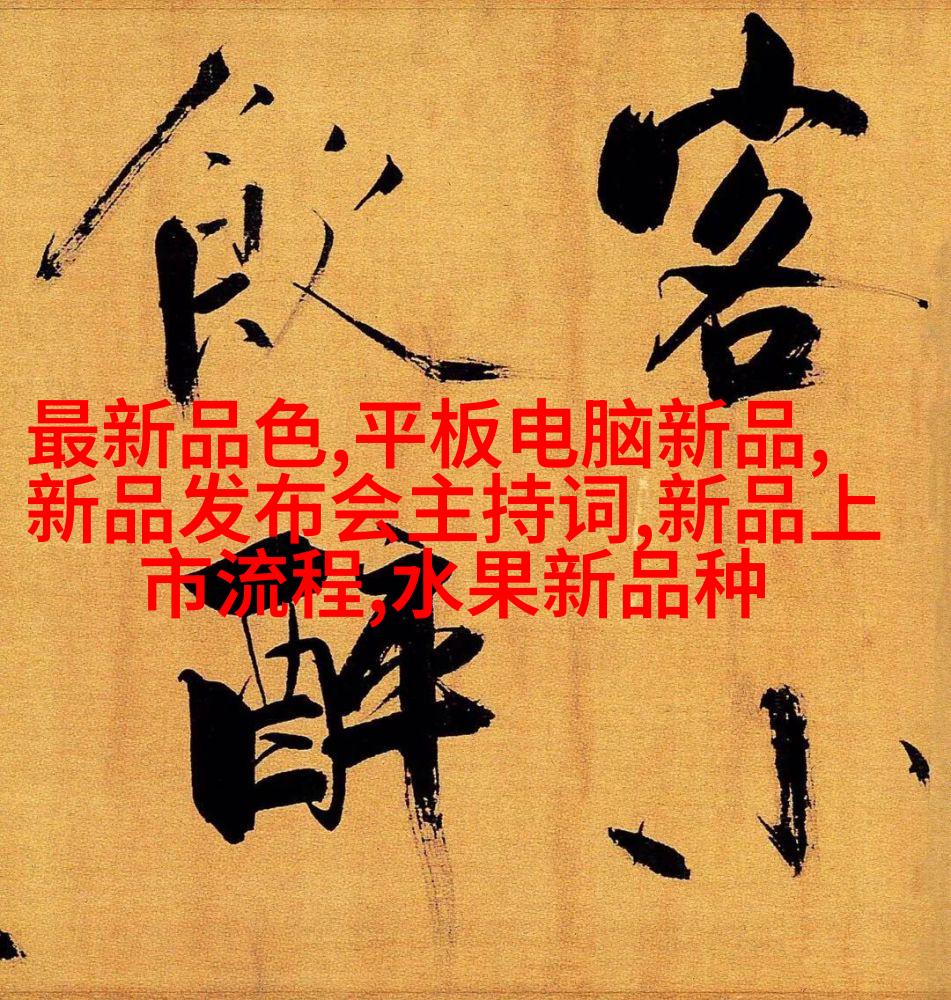 客小
飲醉
最新品色,平板电脑新品,
新品发布会主持词,新品上
市流程,水果新品种